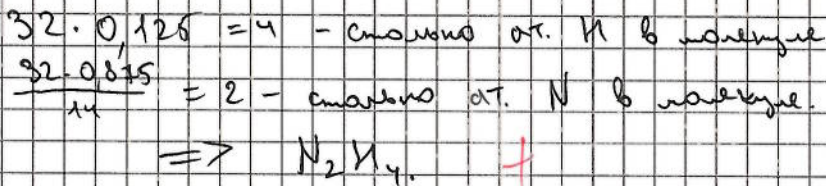 32 · 0,125 = 4 - столько ат. H в молекуле
32 · 0,875 / 14 = 2 - столько ат. N в молекуле.
=> N₂H₄. +